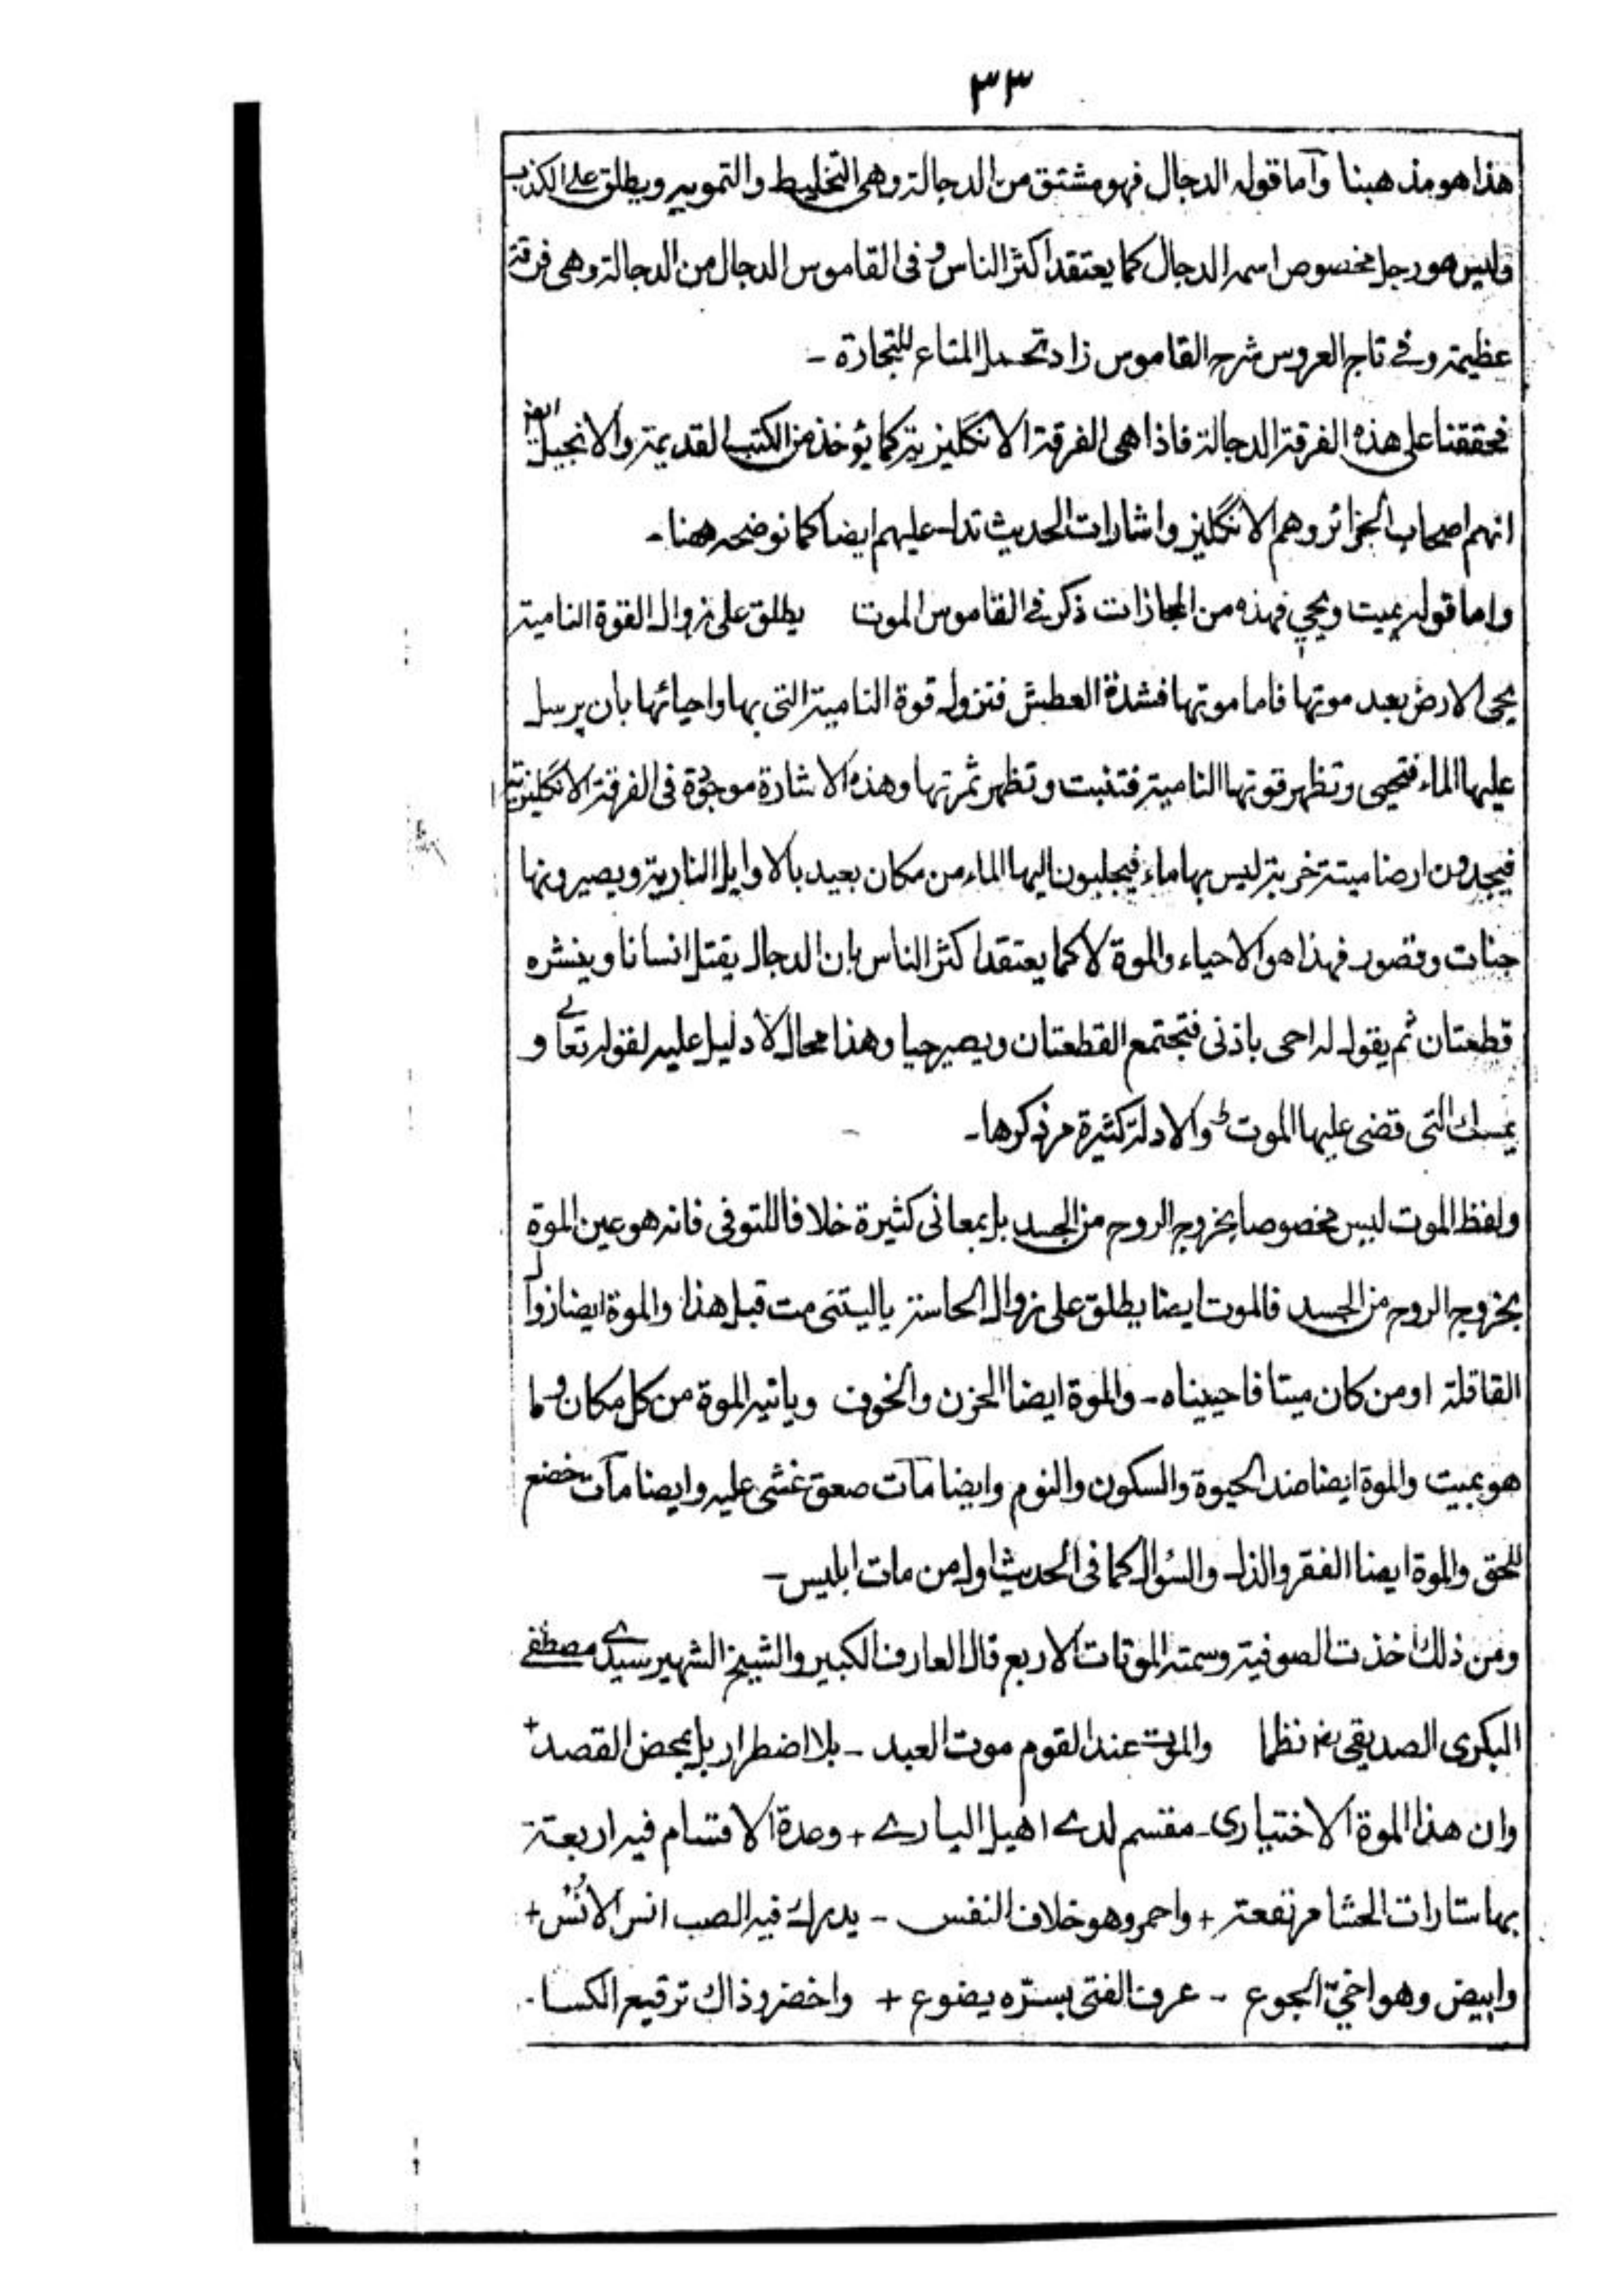 ٣٣
هذا هو مذهبنا وآما قوله الدجال فهو مشتق من الدجالة وهى التخليط والتمويه ويطلق على الكذب
وليس هو رجل مخصوص اسمه الدجال كما يعتقد اكثر الناس وفى القاموس الدجال من الدجالة وهى فرقة
عظيمة وفے تاج العروس شرح القاموس زاد تحمل المتاع للتجارة -
فحققنا على هذه الفرقة الدجالة فاذا هى الفرقة الانكليزية كما يؤخذ من الكتب القديمة والانجيل
انهم اصحاب الجزائر وهم الانكليز واشارات الحديث تدل عليهم ايضا كما نوضحه ههنا -
واما قوله يميت ويحي فهذه من المجازات ذكر فے القاموس الموت يطلق على زوال القوة النامية
يحى الارض بعد موتها فاما موتها فشدة العطش فتزول قوة النامية التى بها واحيائها بان يرسل
عليها الماء فتحيى وتظهر قوتها النامية فتنبت وتظهر ثمرتها وهذه الاشارة موجودة فى الفرقة الانكليزية
فيجدون ارضا ميتة خربة ليس بها ماء فيجلبون اليها الماء من مكان بعيد بالاوايل النارية ويصيرونها
جنات وقصور فهذا هو الاحياء والموة لا كما يعتقد اكثر الناس بان الدجال يقتل انسانا وينشره
قطعتان ثم يقول له احى باذنى فتجتمع القطعتان ويصير حيا وهذا محال لا دليل عليه لقوله تعالے و
يمسك التى قضى عليها الموت والادلة كثيرة مر ذكرها -
ولفظ الموت ليس مخصوصا بخروج الروح من الجسد بل بمعانى كثيرة خلافا للتوفى فانه هو عين الموة
بخروج الروح من الجسد فالموت ايضا يطلق على زوال الحاسة ياليتنى مت قبل هذا والموة ايضا زوال
القاقلة او من كان ميتا فاحييناه - والموة ايضا الحزن والخوف وياتيه الموة من كل مكان وما
هو بميت والموة ايضا ضد الحيوة والسكون والنوم وايضا مآت صعق غشى عليه وايضا مآت خضع
للحق والموة ايضا الفقر والذل والسؤال كما فى الحديث اول من مات ابليس -
ومن ذلك اخذت الصوفية وسمته الموتات الاربع قال العارف الكبير والشيخ الشهير سيدے مصطفى
البكرى الصديقى نظما والموت عند القوم موت العبد - بلا اضطرار بل بمحض القصد +
وان هذا الموة الاختيارى - مقسم لدے اهيل البارے + وعدة الاقسام فيه اربعة
بها ستارات الحشا مرتفعة + واحمر وهو خلاف النفس - يدرك فيه الصب انس الاُنْس +
وابيض وهو اخىّ الجوع - عرف الفتى بسرّه يضوع + واخضر وذاك ترقيع الكسا -